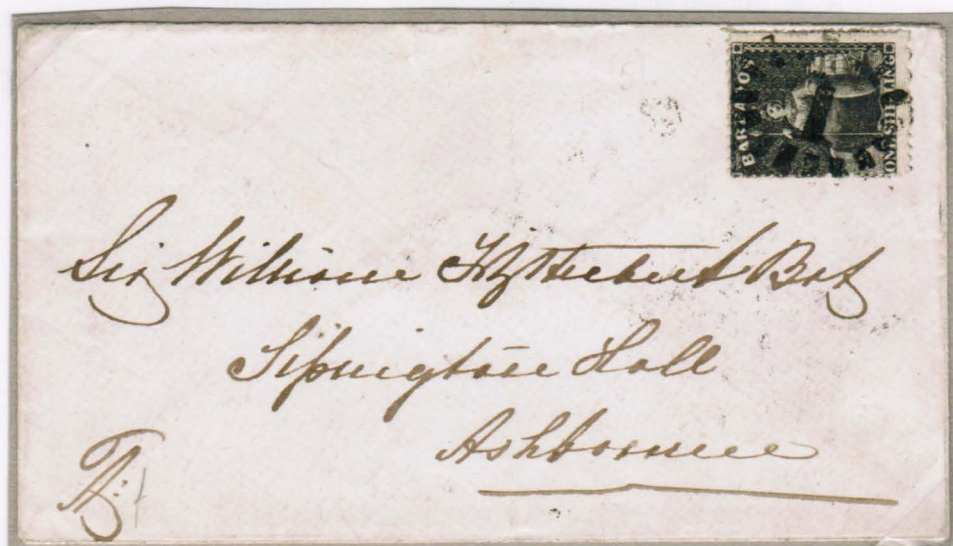 BARBADOS
ONE SHILLING
Sir William FitzHerbert Bart
Tissington Hall
Ashborne